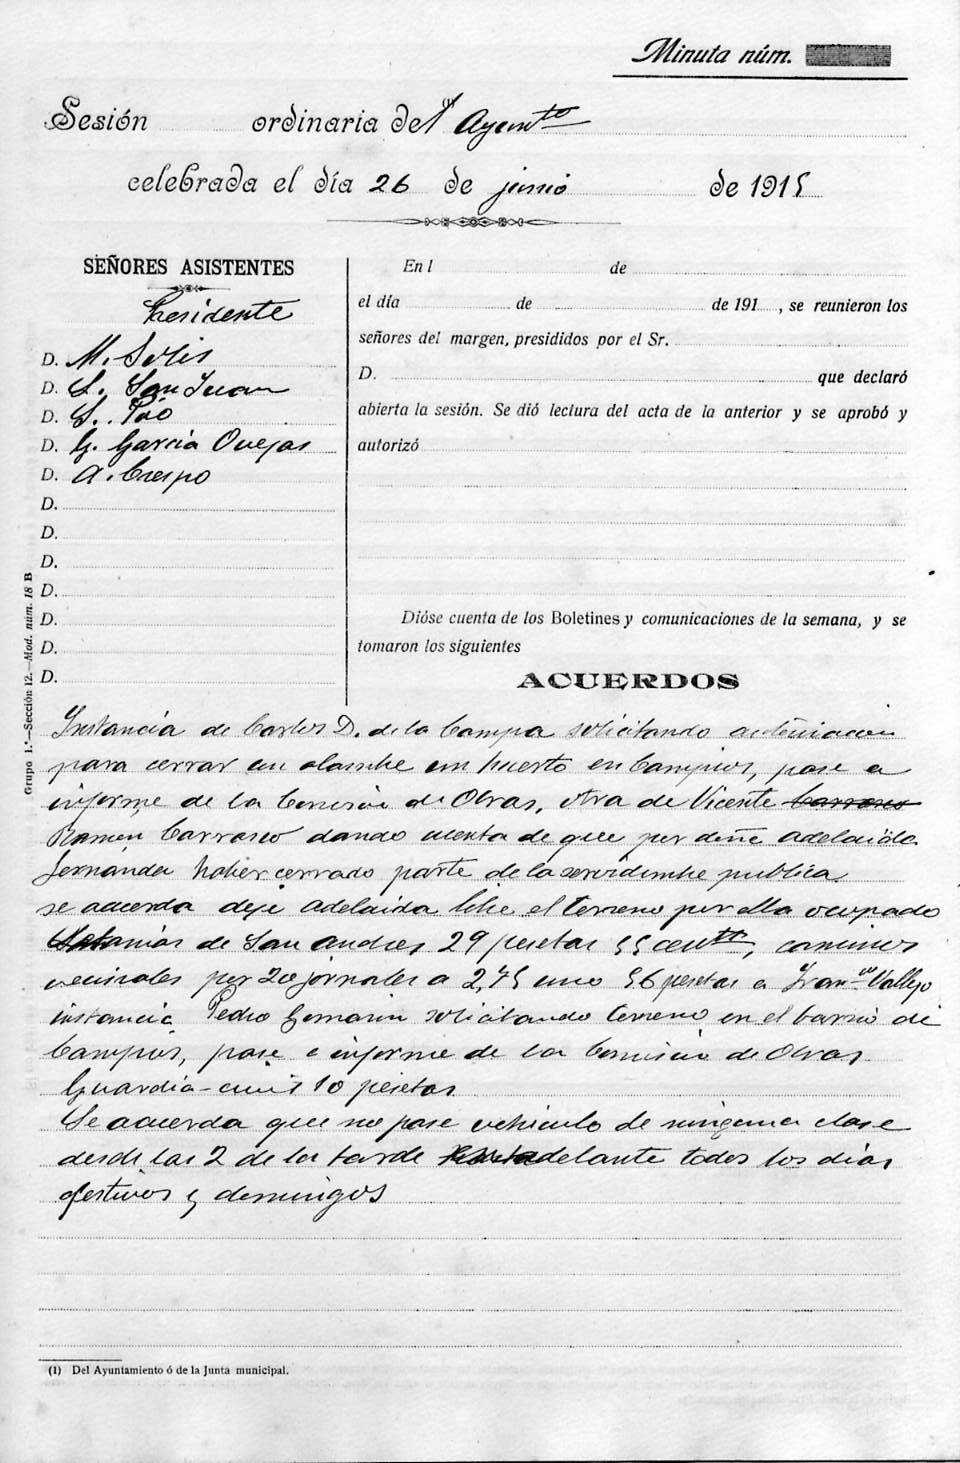 Minuta núm.
Sesión ordinaria del Ayunto
celebrada el día 26 de junio de 1915
SEÑORES ASISTENTES
Presidente
D. M. Solis
D. S. San Juan
D. S. Pao
D. G. García Ovejas
D. A. Crespo
D.
D.
D.
D.
D.
D.
D.
En l de
el día de de 191 , se reunieron los
señores del margen, presididos por el Sr.
D. que declaró
abierta la sesión. Se dió lectura del acta de la anterior y se aprobó y
autorizó
Dióse cuenta de los Boletines y comunicaciones de la semana, y se
tomaron los siguientes
ACUERDOS
Instancia de Carlos D. de la Campa solicitando
para cerrar un alambre un huerto en Campios, pase a
informe de la Comisión de Obras, otra de Vicente Carrasco
Ramón Carrasco dando cuenta de que por doña Adelaida
Fernanda haber cerrado parte de la servidumbre publica
se acuerda deje Adelaida libre el terreno por ella ocupado
de San Andres 29 pesetas 55 centos, caminos
vecinales por 20 jornales a 2,75 uno 56 pesetas a Franco Vallejo
instancia Pedro German solicitando terreno en el barrio de
Campios, pase e informe de la Comision de Obras
Guardia-civil 10 pesetas
Se acuerda que no pase vehiculo de ninguna clase
desde las 2 de la tarde adelante todos los dias
festivos y domingos
(1) Del Ayuntamiento ó de la Junta municipal.
Grupo 1.º—Sección 12.—Mod. núm. 18 B